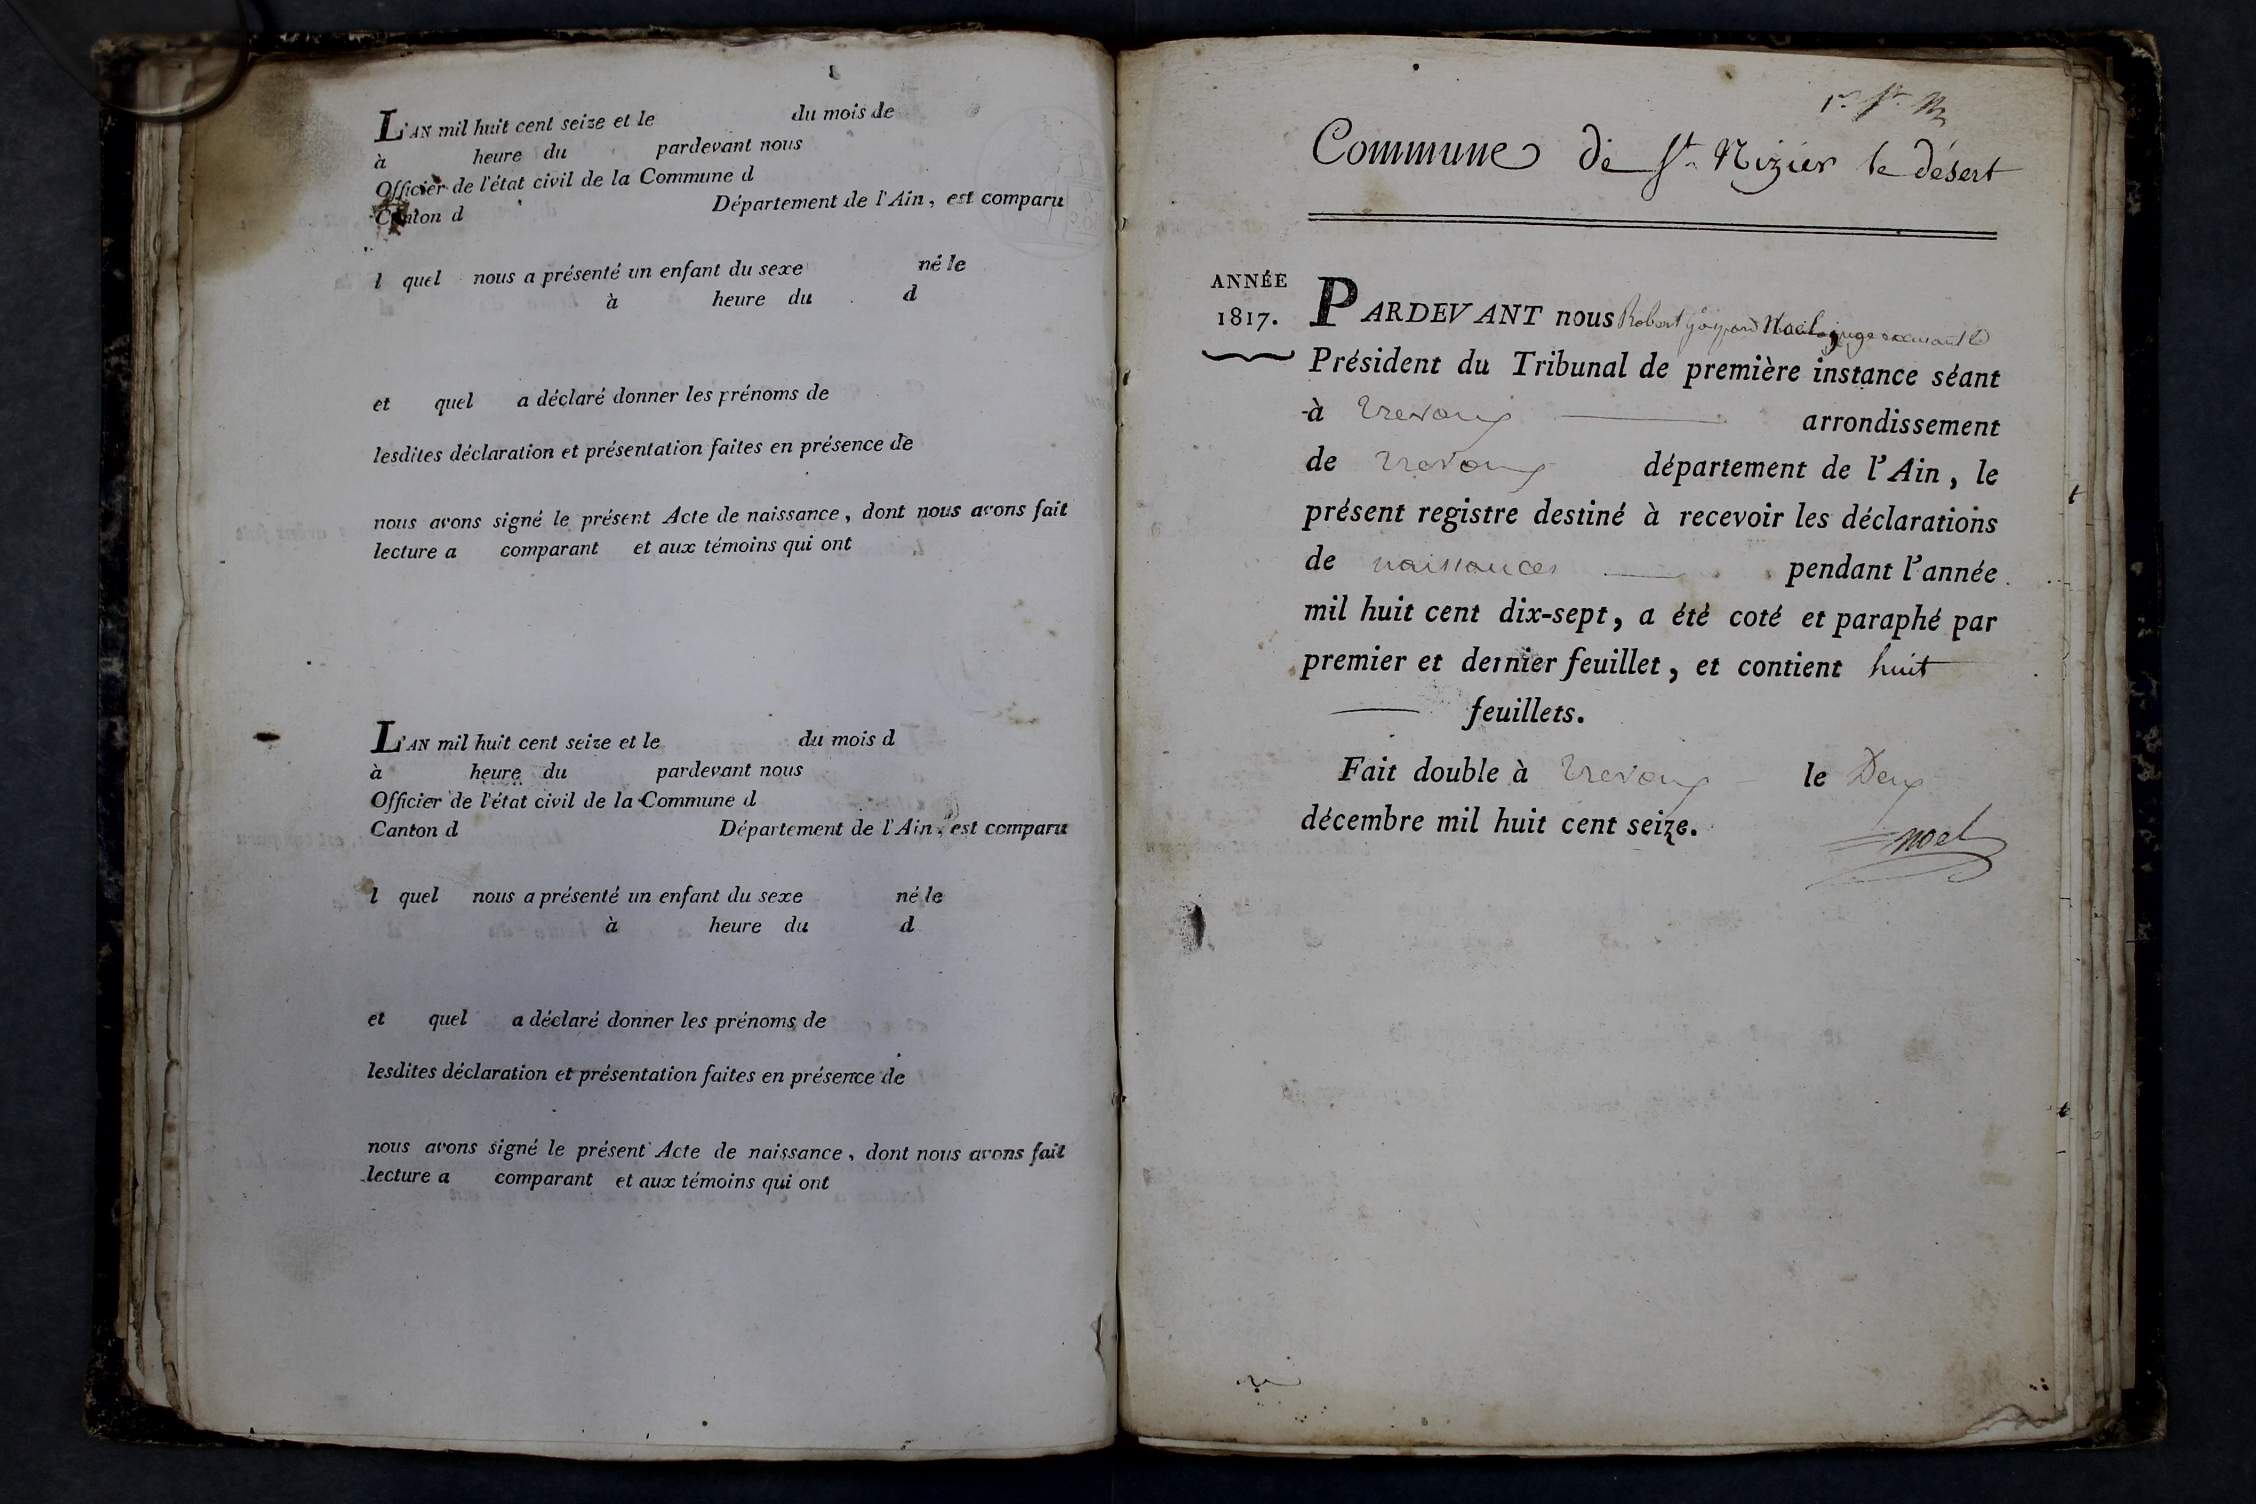 L'AN mil huit cent seize et le du mois de
à heure du pardevant nous
Officier de l'état civil de la Commune d
Canton d Département de l'Ain, est comparu
l quel nous a présenté un enfant du sexe né le
à heure du d
et quel a déclaré donner les prénoms de
lesdites déclaration et présentation faites en présence de
nous avons signé le présent Acte de naissance, dont nous avons fait
lecture a comparant et aux témoins qui ont
L'AN mil huit cent seize et le du mois d
à heure du pardevant nous
Officier de l'état civil de la Commune d
Canton d Département de l'Ain, est comparu
l quel nous a présenté un enfant du sexe né le
à heure du d
et quel a déclaré donner les prénoms de
lesdites déclaration et présentation faites en présence de
nous avons signé le présent Acte de naissance, dont nous avons fait
lecture a comparant et aux témoins qui ont
Commune de St Nizier le désert
ANNÉE
1817.
PARDEVANT nous Robert Gaspard Noel juge
Président du Tribunal de première instance séant
à Trevoux arrondissement
de Trevoux département de l'Ain, le
présent registre destiné à recevoir les déclarations
de naissances pendant l'année
mil huit cent dix-sept, a été coté et paraphé par
premier et dernier feuillet, et contient huit
feuillets.
Fait double à Trevoux le Deux
décembre mil huit cent seize.
Noel